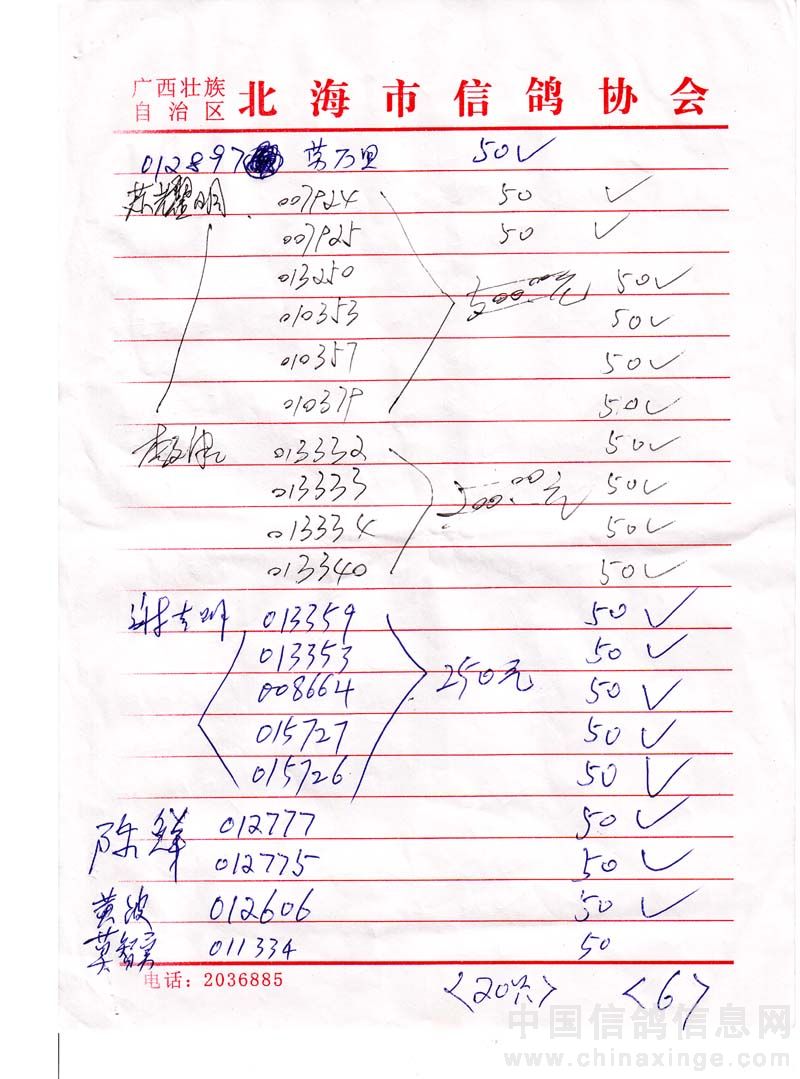 广西壮族
自治区
北海市信鸽协会
012897 劳万里 50√
苏耀明 007924 50 √
007925 50 √
013250 50√
010353 50√
010357 50√
010379 50√
013332 50√
013333 500.00元 50√
013334 50√
013340 50√
谢志明 013359 50√
013353 50√
008664 250元 50√
015727 50√
015726 50√
陈鲜 012777 50√
012775 50√
黄波 012606 50√
莫智宾 011334 50
电话：2036885
<6>
中国信鸽信息网
www.chinaxinge.com